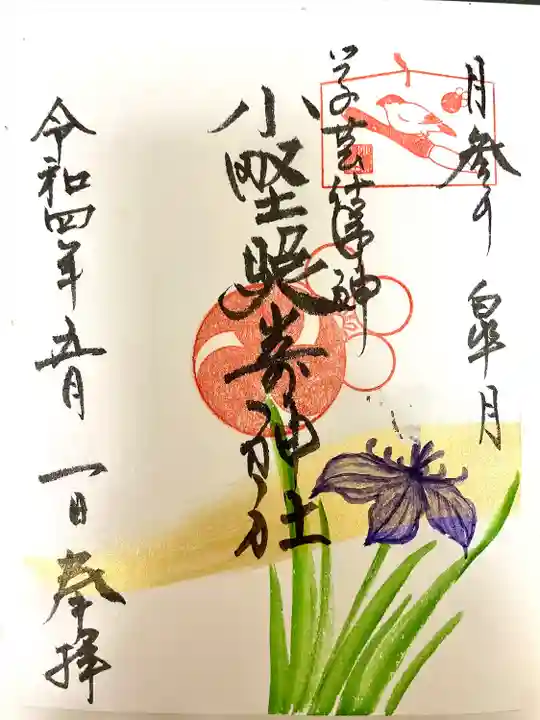 月参り 皐月
学芸祖神
小野照崎神社
令和四年五月一日奉拝